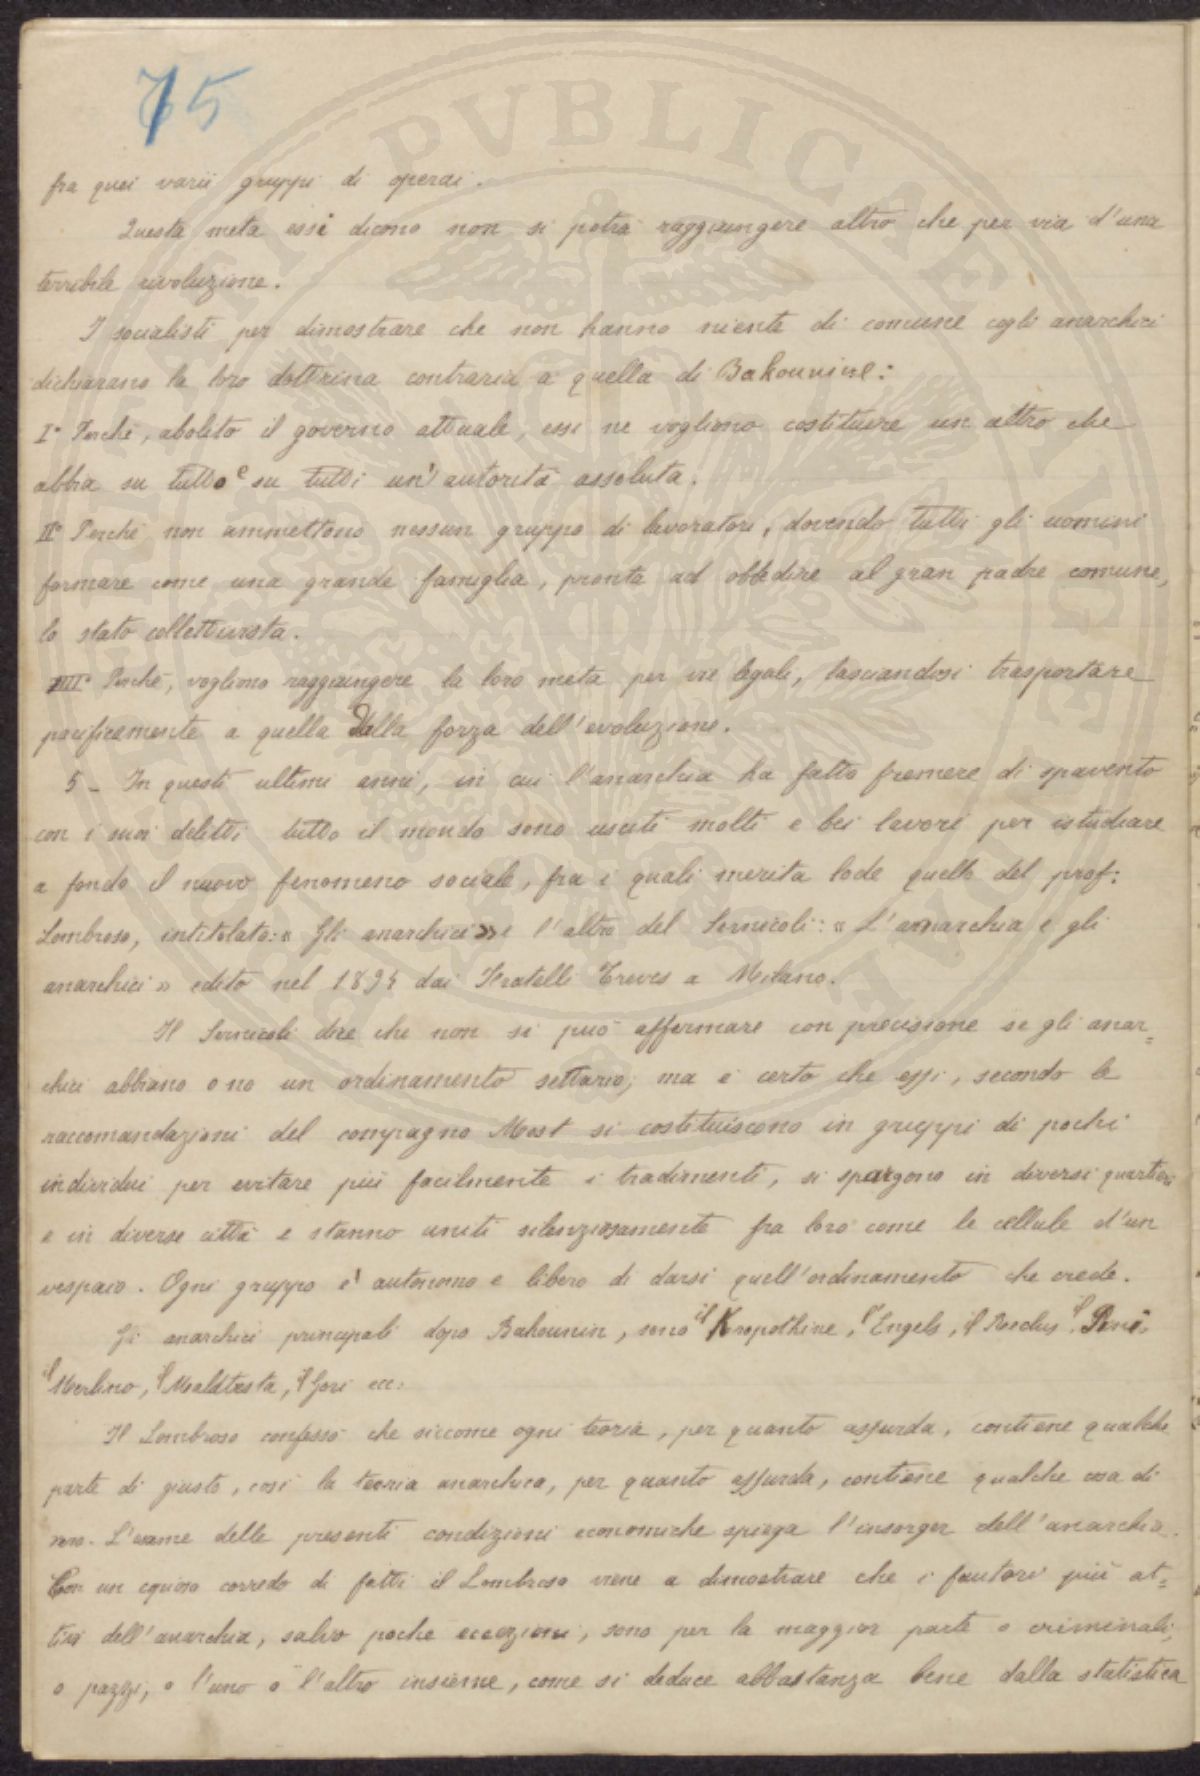 75
fra quei varii gruppi di operai.
Questa meta essi dicono non si potrà raggiungere altro che per via d'una
terribile rivoluzione.
I socialisti per dimostrare che non hanno niente di comune cogli anarchici
dichiarano la loro dottrina contraria a quella di Bakounine:
I° Perchè, abolito il governo attuale, essi ne vogliono costituire un altro che
abbia su tutto e su tutti un'autorità assoluta.
II° Perchè non ammettono nessun gruppo di lavoratori, dovendo tutti gli uomini
formare come una grande famiglia, pronta ad obbedire al gran padre comune,
lo stato collettivista.
III° Perchè, vogliono raggiungere la loro meta per vie legali, lasciandosi trasportare
pacificamente a quella dalla forza dell'evoluzione.
5 - In questi ultimi anni, in cui l'anarchia ha fatto fremere di spavento
con i suoi delitti tutto il mondo sono usciti molti e bei lavori per istudiare
a fondo il nuovo fenomeno sociale, fra i quali merita lode quello del prof:
Lombroso, intitolato: « Gli anarchici » e l'altro del Sernicoli: « L'anarchia e gli
anarchici » edito nel 1894 dai Fratelli Treves a Milano.
Il Sernicoli dice che non si può affermare con precisione se gli anar=
chici abbiano o no un ordinamento settario; ma è certo che essi, secondo le
raccomandazioni del compagno Most si costituiscono in gruppi di pochi
individui per evitare più facilmente i tradimenti, si spargono in diversi quartieri
e in diverse città e stanno uniti silenziosamente fra loro come le cellule d'un
vespaio. Ogni gruppo è autonomo e libero di darsi quell'ordinamento che crede.
Gi anarchici principali dopo Bakounin, sono il Kropothine, l'Engels, il Reclus, il Pini,
il Merlino, il Malatesta, il Gori ecc:
Il Lombroso confessò che siccome ogni teoria, per quanto assurda, contiene qualche
parte di giusto, così la teoria anarchica, per quanto assurda, contiene qualche cosa di
vero. L'esame delle presenti condizioni economiche spiega l'insorger dell'anarchia.
Con un copioso corredo di fatti il Lombroso viene a dimostrare che i fautori più at=
tivi dell'anarchia, salvo poche eccezioni, sono per la maggior parte o criminali,
o pazzi, o l'uno o l'altro insieme, come si deduce abbastanza bene dalla statistica